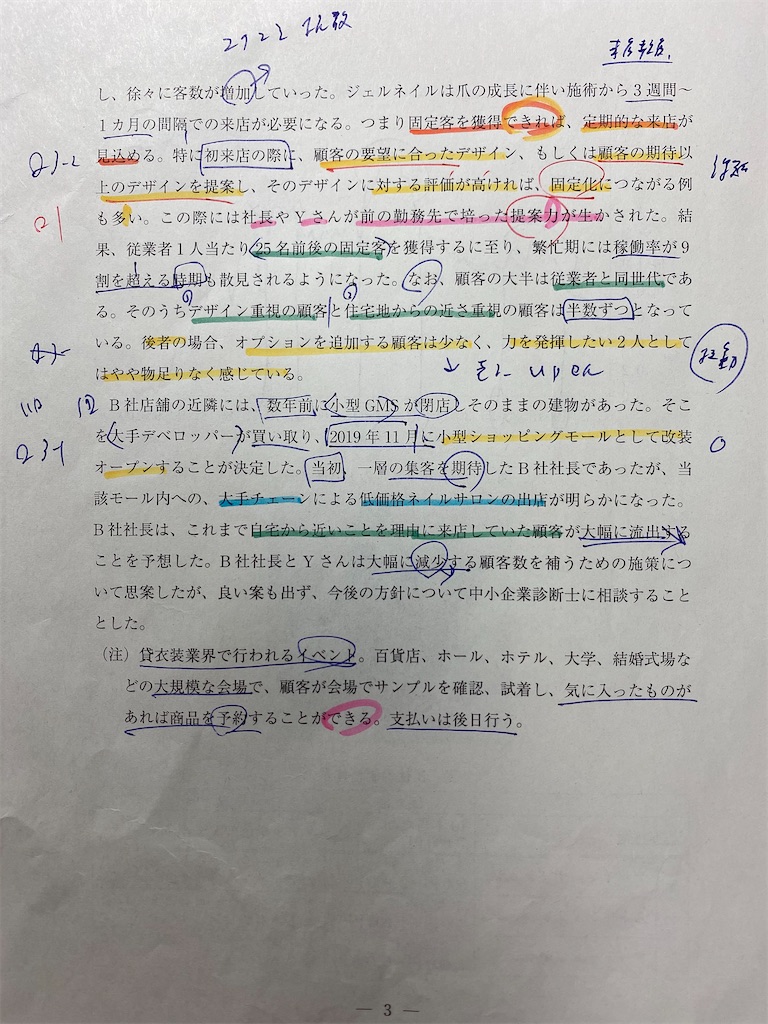 し、徐々に客数が増加していった。ジェルネイルは爪の成長に伴い施術から3週間～
1カ月の間隔での来店が必要になる。つまり固定客を獲得できれば、定期的な来店が
見込める。特に初来店の際に、顧客の要望に合ったデザイン、もしくは顧客の期待以
上のデザインを提案し、そのデザインに対する評価が高ければ、固定化につながる例
も多い。この際には社長やYさんが前の勤務先で培った提案力が生かされた。結
果、従業者1人当たり25名前後の固定客を獲得するに至り、繁忙期には稼働率が9
割を超える時期も散見されるようになった。なお、顧客の大半は従業者と同世代であ
る。そのうちデザイン重視の顧客と住宅地からの近さ重視の顧客は半数ずつとなって
いる。後者の場合、オプションを追加する顧客は少なく、力を発揮したい2人として
はやや物足りなく感じている。
B社店舗の近隣には、数年前に小型GMSが閉店しそのままの建物があった。そこ
を大手デベロッパーが買い取り、2019年11月に小型ショッピングモールとして改装
オープンすることが決定した。当初、一層の集客を期待したB社社長であったが、当
該モール内への、大手チェーンによる低価格ネイルサロンの出店が明らかになった。
B社社長は、これまで自宅から近いことを理由に来店していた顧客が大幅に流出する
ことを予想した。B社社長とYさんは大幅に減少する顧客数を補うための施策につ
いて思案したが、良い案も出ず、今後の方針について中小企業診断士に相談すること
とした。
(注) 貸衣装業界で行われるイベント。百貨店、ホール、ホテル、大学、結婚式場な
どの大規模な会場で、顧客が会場でサンプルを確認、試着し、気に入ったものが
あれば商品を予約することができる。支払いは後日行う。
— 3 —